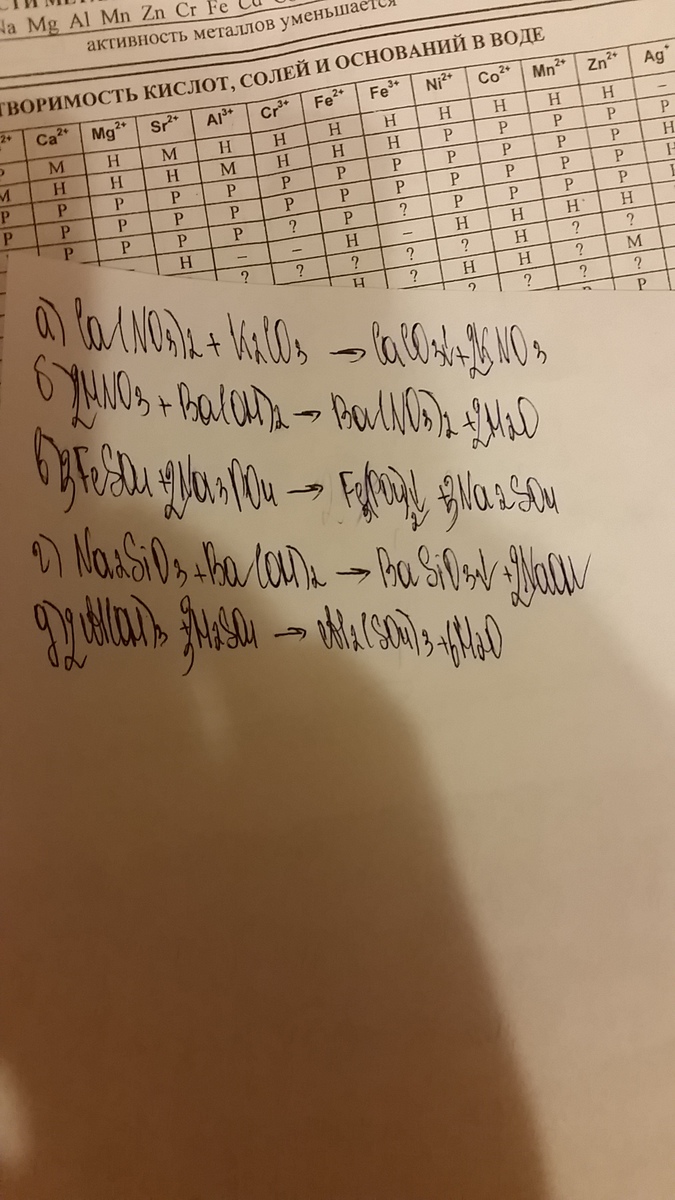 Na Mg Al Mn Zn Cr Fe Cd
активность металлов уменьшается
ТВОРИМОСТЬ КИСЛОТ, СОЛЕЙ И ОСНОВАНИЙ В ВОДЕ
2+ Ca²⁺ Mg²⁺ Sr²⁺ Al³⁺ Cr³⁺ Fe²⁺ Fe³⁺ Ni²⁺ Co²⁺ Mn²⁺ Zn²⁺ Ag⁺
Р М Н М Н Н Н Н Н Н Н Н –
М Н Н Н М Н Н Н Р Р Р Р Р
Р Р Р Р Р Р Р Р Р Р Р Р Н
Р Р Р Р Р Р Р Р Р Р Р Р
Р Р Р Р ? Р ? Р Р Н Н Н
Н – – Н – Н Н Н ? ?
? ? ? ? ? Н ? М
а) Ca(NO3)2 + K2CO3 → CaCO3↓ + 2KNO3
б) 2HNO3 + Ba(OH)2 → Ba(NO3)2 + 2H2O
в) 3FeSO4 + 2Na3PO4 → Fe3(PO4)2↓ + 3Na2SO4
г) Na2SiO3 + Ba(OH)2 → BaSiO3↓ + 2NaOH
д) 2Al(OH)3 + 3H2SO4 → Al2(SO4)3 + 6H2O